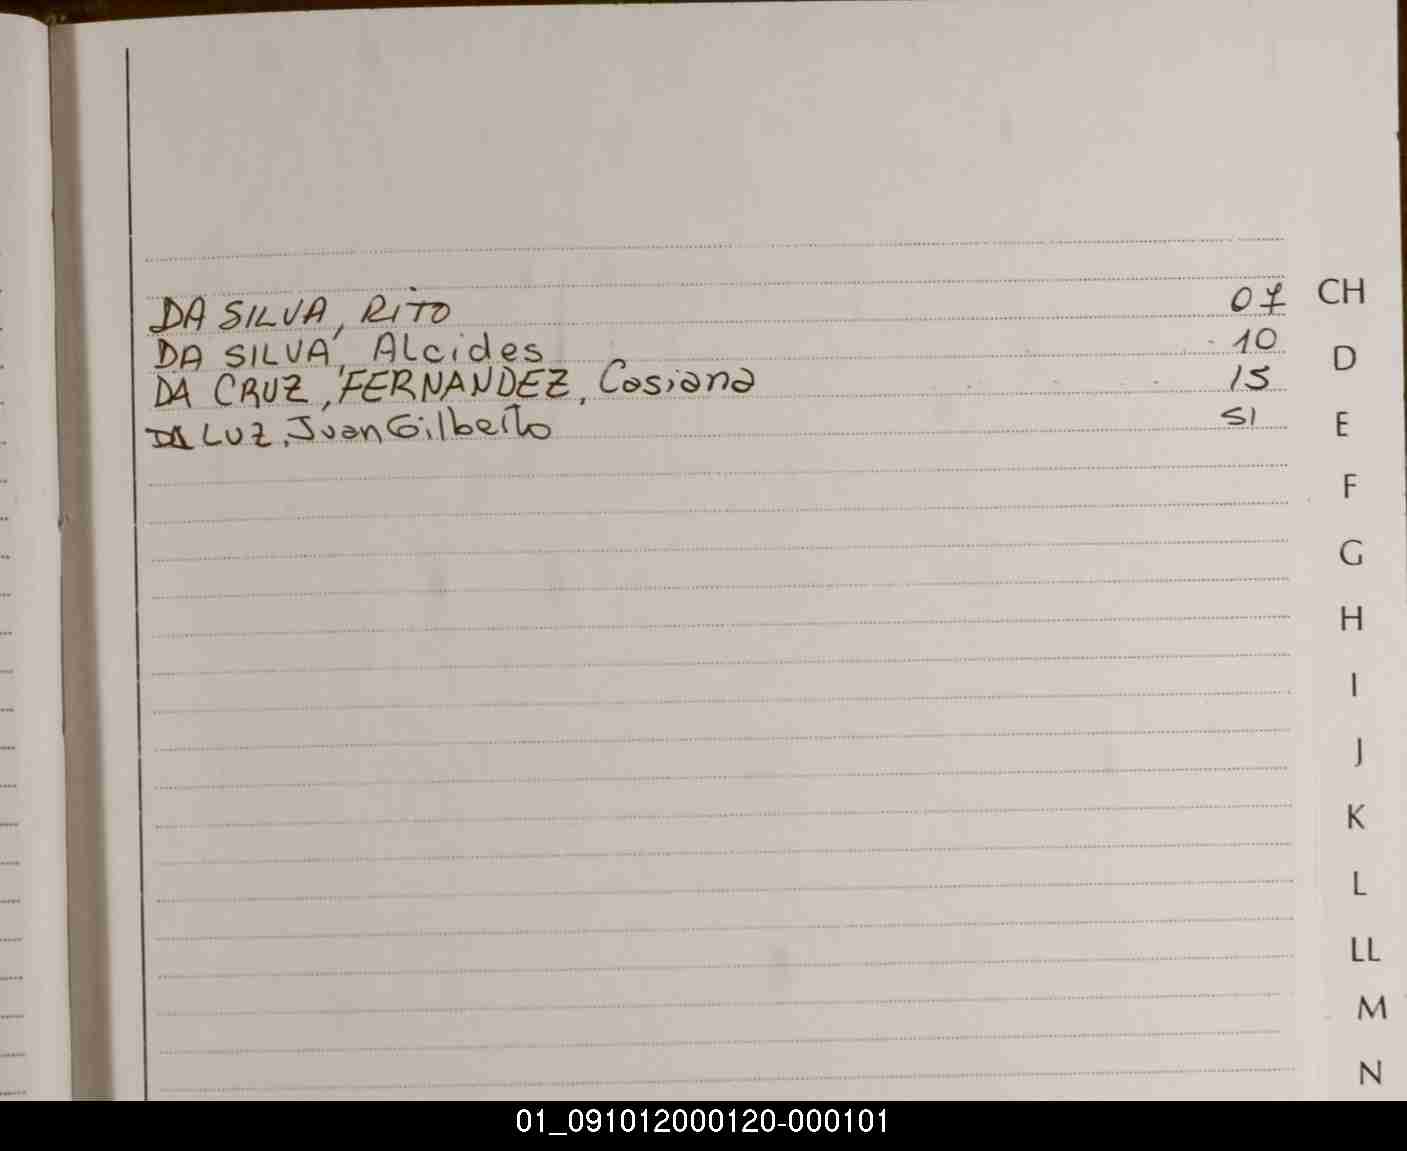 DA SILVA, RITO 07 CH
DA SILVA, Alcides 10 D
DA CRUZ, FERNANDEZ, Casiana 15
DA LUZ, Juan Gilberto 51 E
F
G
H
I
J
K
L
LL
M
N
01_091012000120-000101